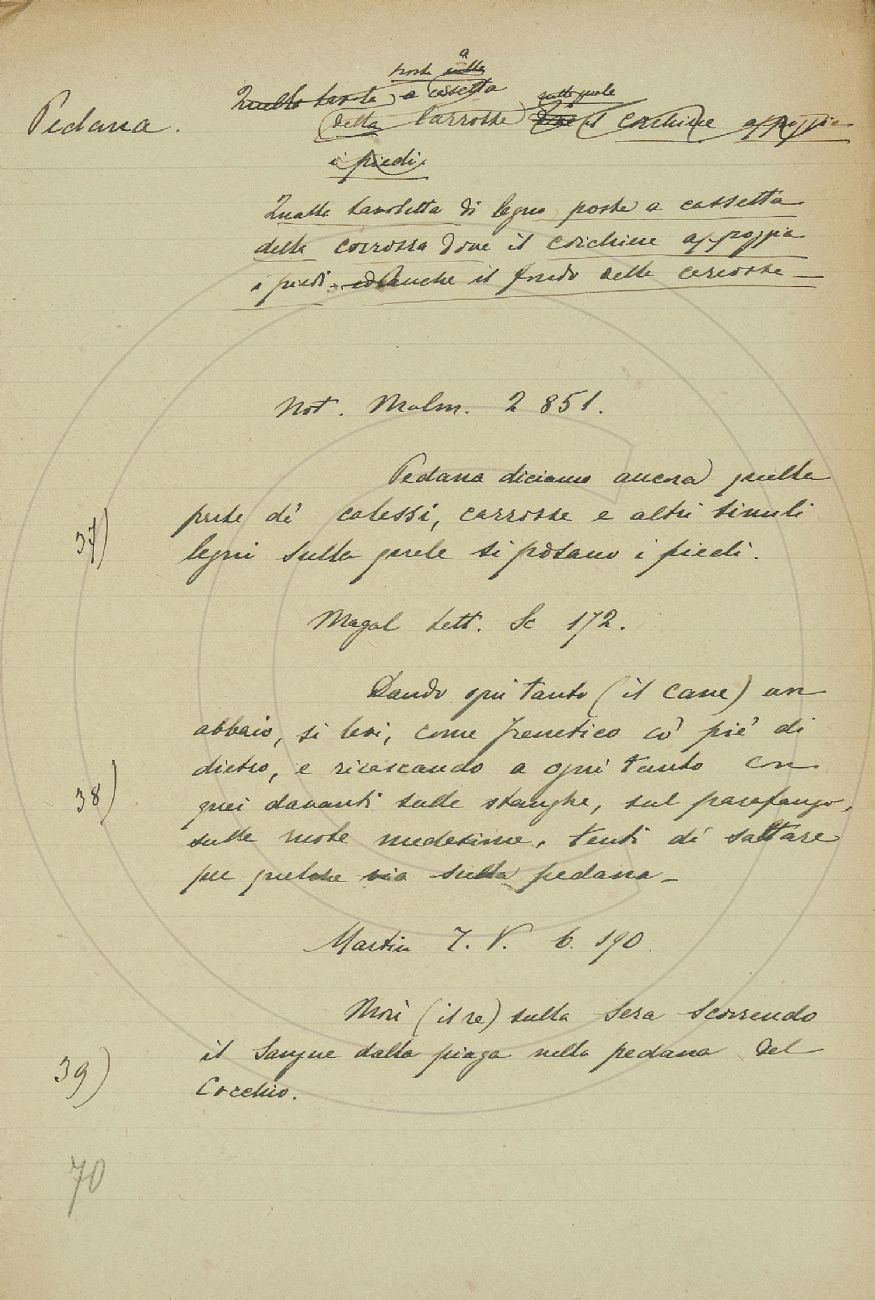 posta a
Pedana. Quella tavola a cassetta sulla quale
della Carrozza il cocchiere appoggia
i piedi.
Quella tavoletta di legno posta a cassetta
della carrozza dove il cocchiere appoggia
i piedi. ed anche il fondo delle carrozze —
Not. Malm. 2 851.
Pedana diciamo ancora quella
37) parte de' calessi, carrozze e altri simili
legni sulla quale si posano i piedi.
Magal Lett. Sc 172.
Dando ogni tanto (il cane) un
abbaio, si levi, come frenetico co' piè di
dietro, e ricascando a ogni tanto con
38) quei davanti sulle stanghe, sul parafango,
sulle ruote medesime, tenti di saltare
per qualche via sulla pedana —
Martin T. V. 6. 190
Morì (il re) sulla sera scorrendo
39) il sangue dalla piaga nella pedana del
Cocchio.
70